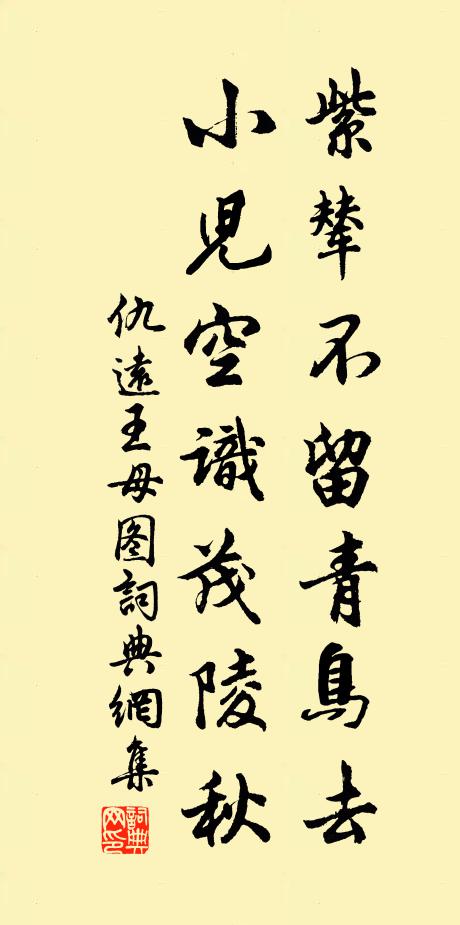 紫輦不留青鳥去
小兒空識茂陵秋
仇遠王母图詞典網集
詞典网印